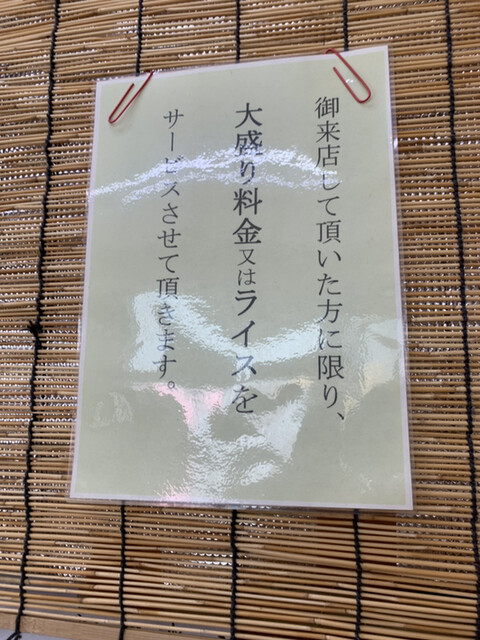 御来店して頂いた方に限り、
大盛り料金又はライスを
サービスさせて頂きます。